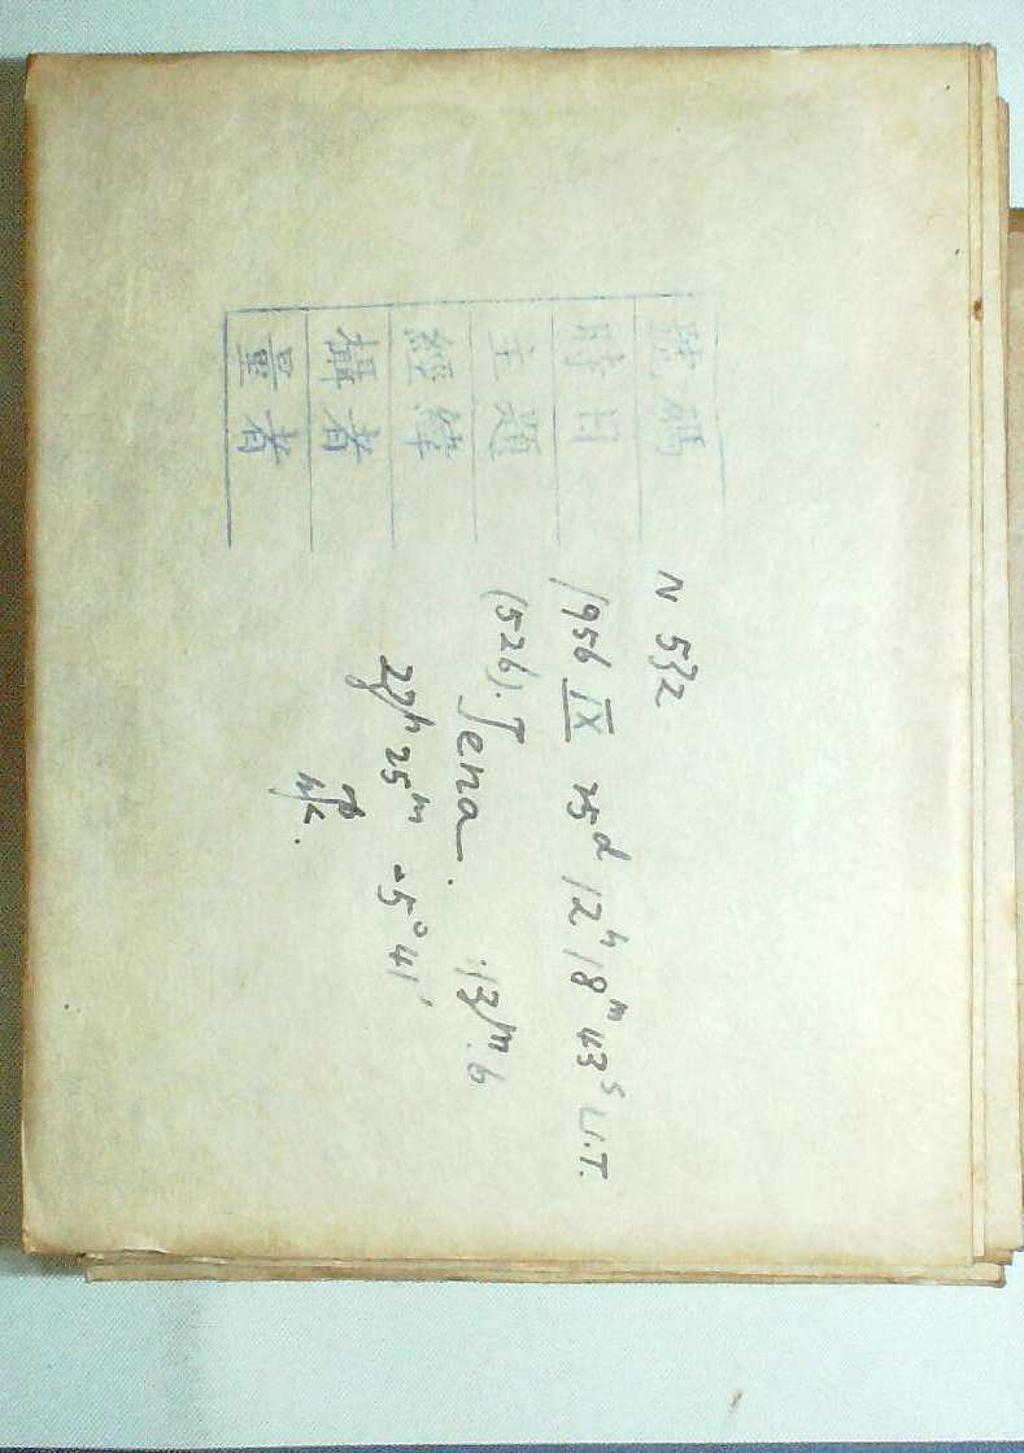 號碼 N 532
時日 1956 IX 25d 12h 18m 43s U.T.
主題 (526). Jena. 13m.6
經緯 23h 25m -5° 41'
攝者
量者